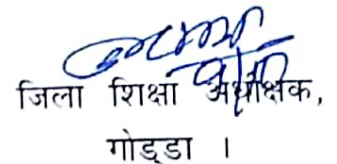 जिला शिक्षा अधीक्षक,
गोड्डा ।